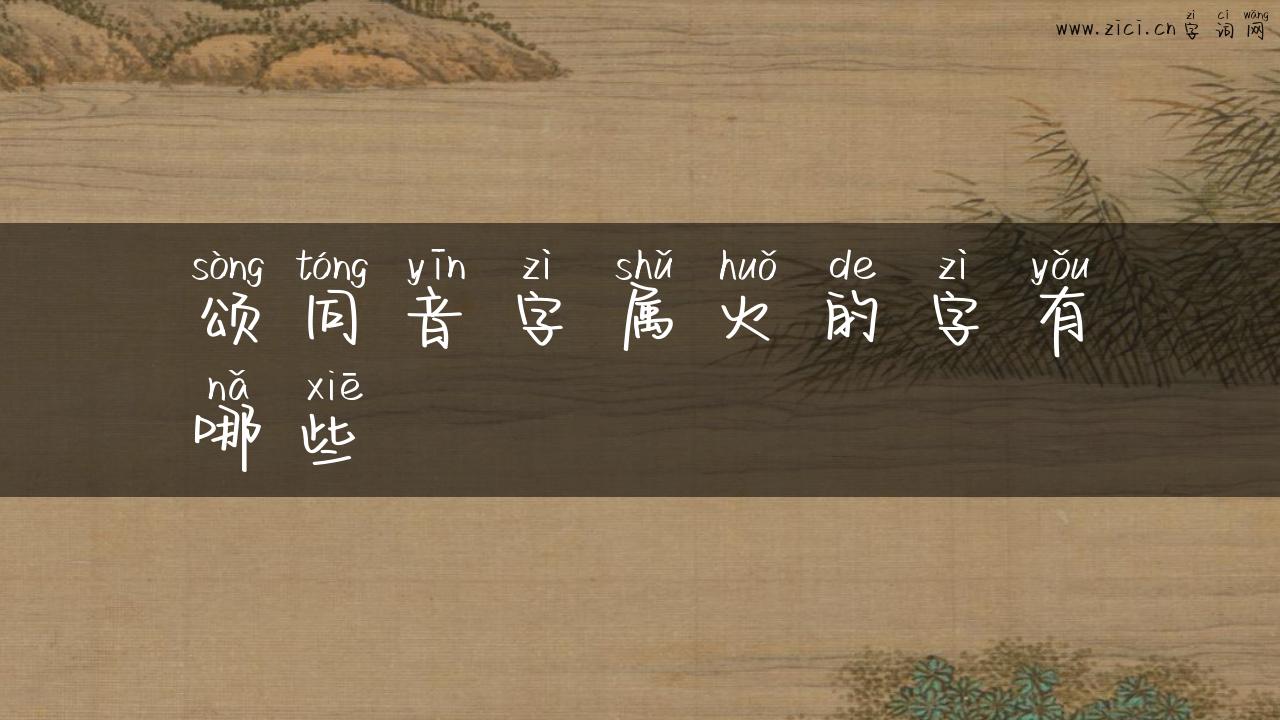 www.zici.cn 字词网
zì cí wǎng
sòng tóng yīn zì shǔ huǒ de zì yǒu
颂同音字属火的字有
nǎ xiē
哪些